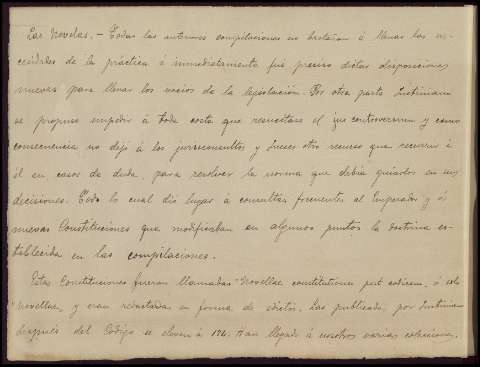 Las Novelas. - Todas las anteriores compilaciones no bastaban á llenar las ne-
cesidades de la práctica é inmediatamente fué preciso dictar disposiciones
nuevas para llenar los vacios de la legislación. Por otra parte Justiniano
se propuso impedir á toda costa que resucitase el jus controversum y como
consecuencia no dejó á los jurisconsultos y Jueces otro recurso que recurrir á
él en casos de duda, para resolver la norma que debia guiarlos en sus
decisiones. Todo lo cual dió lugar á consultas frecuentes al Emperador y á
nuevas Constituciones que modificaban en algunos puntos la doctrina es-
tablecida en las compilaciones.
Estas Constituciones fueron llamadas "Novellae constitutiones post codicem, ó solo
"Novellae, y eran redactadas en forma de edictos. Las publicadas por Justiniano
después del Código se elevan á 174. Han llegado á nosotros varias colecciones,